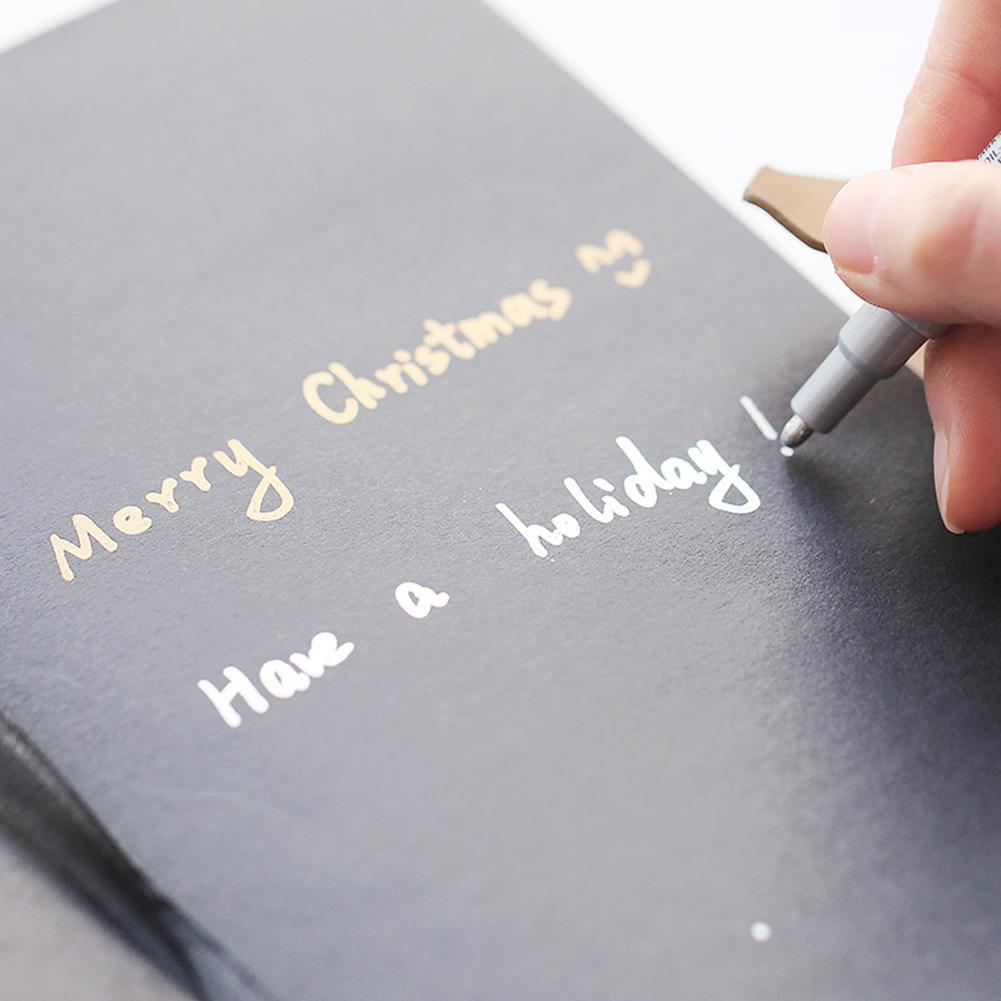 Merry Christmas
Have a holiday !